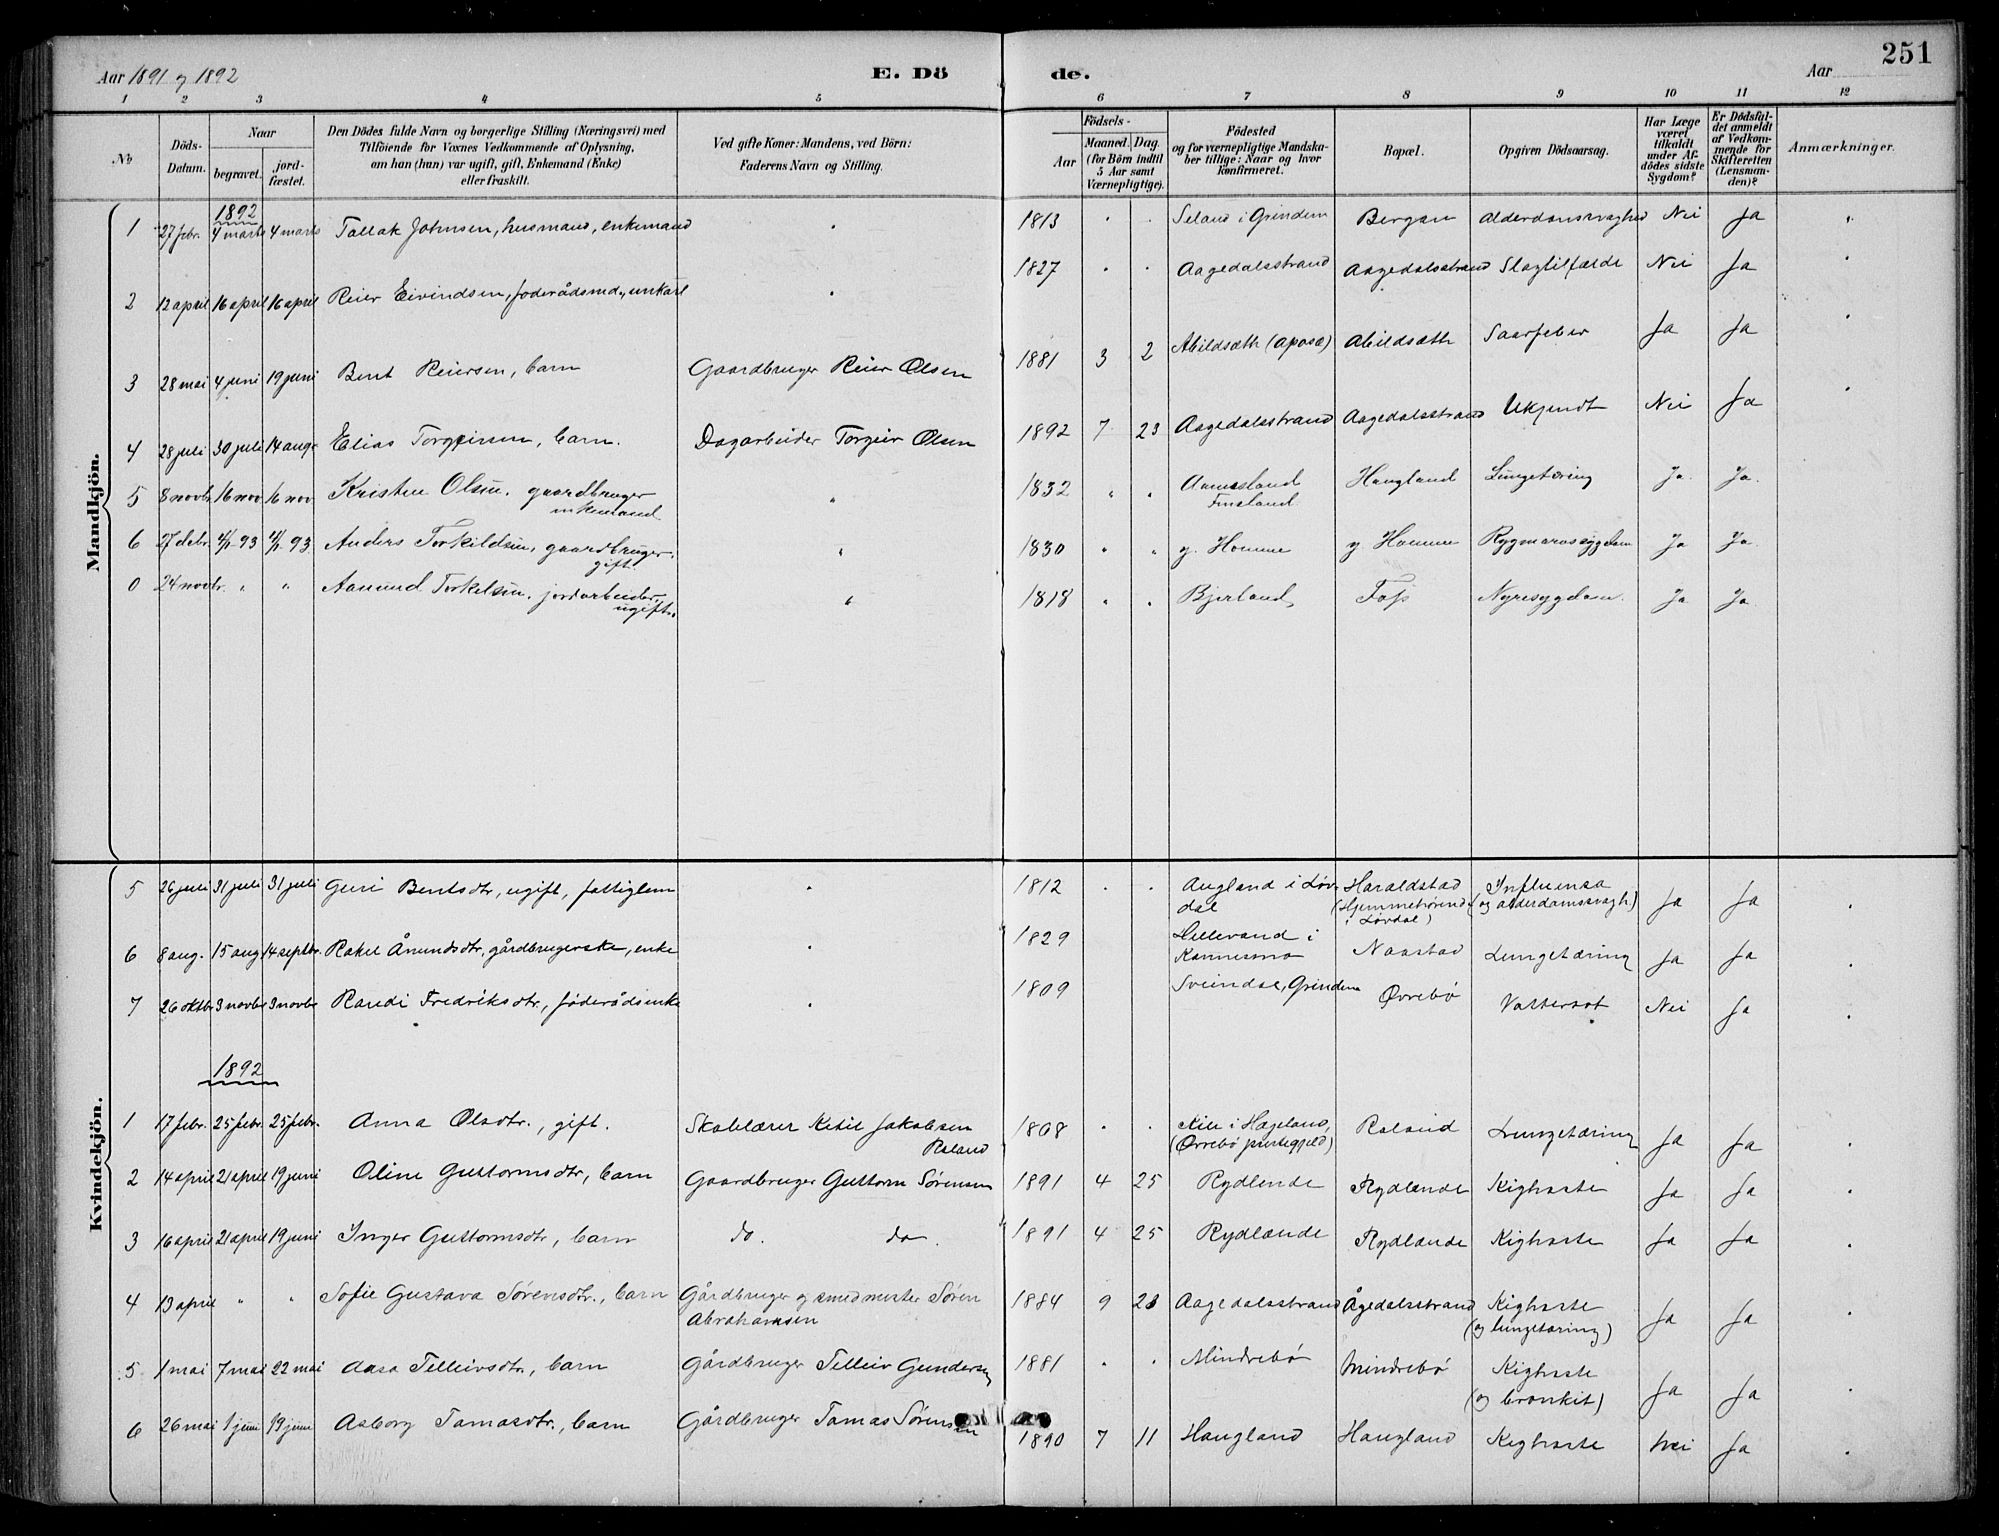 Aar 1891 og 1892 E. Dö de. Aar 251
1 2 3 4 5 6 7 8 9 10 11 12
No
Döds-Datum.
Naar
begravet.
jord-fæstet.
Den Dödes fulde Navn og borgerlige Stilling (Næringsvei) med
Tilföiende for Voxnes Vedkommende af Oplysning,
om han (hun) var ugift, gift, Enkemand (Enke)
eller fraskilt.
Ved gifte Koner: Mandens, ved Börn:
Faderens Navn og Stilling.
Födsels-
Aar
Maaned. Dag.
(for Börn indtil
5 Aar samt
Værnepligtige).
Födested
og for værnepligtige Mandska-
ber tillige: Naar og hvor
konfirmeret.
Bopæl.
Opgiven Dödsaarsag.
Har Læge
været
tilkaldt
under Af-
dödes sidste
Sygdom?
Er Dödsfal-
det anmeldt
af Vedkom-
mende for
Skifteretten
(Lensman-
den)?
Anmærkninger.
Mandkjön.
1892
1 27 febr. 4 marts 4 marts Tallak Johnsen, husmand, enkemand " 1813 " " Seland i Grindem Bergan Alderdomssvaghed Nei Ja "
2 12 april 16 april 16 april Reier Eivindsen, foderådsmd., unkarl " 1827 " " Aagedalsstrand Aagedalsstrand Slagtilfælde Nei Ja "
3 28 mai 4 juni 19 juni Bent Reiersen, barn Gaardbruger Reier Olsen 1881 3 2 Abildsæth (Aposæ) Abildsæth Saarfeber Ja Ja "
4 28 juli 30 juli 14 aug. Elias Torgeirsen, barn. Dagarbeider Torgeir Olsen 1892 7 23 Aagedalsstrand Aagedalsstrand Ukjendt Nei Ja "
5 8 novbr. 16 nov 16 nov Kristen Olsen, gaardbruger
enkemand " 1832 " " Aamesland
Finsland. Haugland Lungetæring Ja. Ja.
6 27 debr. 4/1 93 4/1 93 Anders Torkildsen, gaardbruger,
gift. " 1830 " " y. Homme y. Homme Rygmarvssygdom Ja Ja
0 24 novbr. " " Aanund Torkelsen, jordarbeider,
ugift. " 1818 " " Bjerland, Foss Nyresygdom. Ja Ja
Kvindekjön.
5 26 juli 31 juli 31 juli Guri Bentsdtr, ugift, fattiglem " 1812 " " Augland i Løv-
dal Haraldstad
(Hjemmehørende
i Løvdal) Influensa
(og alderdomssvagh) Ja Ja "
6 8 aug. 15 aug 14 septbr. Rakel Ånundsdtr, gårdbrugerske, enke " 1829 Hellevand i
Konnesmo Naastad Lungetæring Ja Ja "
7 26 oktbr 3 novbr 3 novbr Randi Fredriksdtr., føderådsenke " 1809 Sveindal, Grindem Øvrebø Vattersot Nei Ja "
1892
1 17 febr. 25 febr. 25 febr. Anna Olsdtr., gift. Skolelærer Ketil Jakobsen
Roland 1808 " " Kile i Hægeland,
(Øvrebø prestegjeld) Roland Lungetæring Ja Ja "
2 14 april 21 april 19 juni Oline Guttormsdtr, barn Gaardbruger Guttorm Sørensen 1891 4 25 Rydlende Rydlænde Kighoste Ja Ja "
3 16 april 21 april 19 juni Inger Guttormsdtr, barn do. do. 1891 4 25 Rydlænde Rydlænde Kighoste Ja Ja "
4 13 april " " Sofie Gustava Sørensdtr., barn Gårdbruger og smedmester Søren
Abrahamsen 1884 9 28 Aagedalsstrand Ågedalsstrand Kighoste
(og lungetæring) Ja Ja "
5 1 mai 7 mai 22 mai Aasa Telleivsdtr., barn Gårdbruger Telleiv Gundersen 1881 " " Mindrebø Mindrebø Kighoste
(og bronkit) Ja Ja "
6 26 mai 1 juni 19 juni Asborg Tomasdtr., barn Gårdbruger Tomas Sørensen 1890 7 11 Haugland Haugland Kighoste Nei Ja "